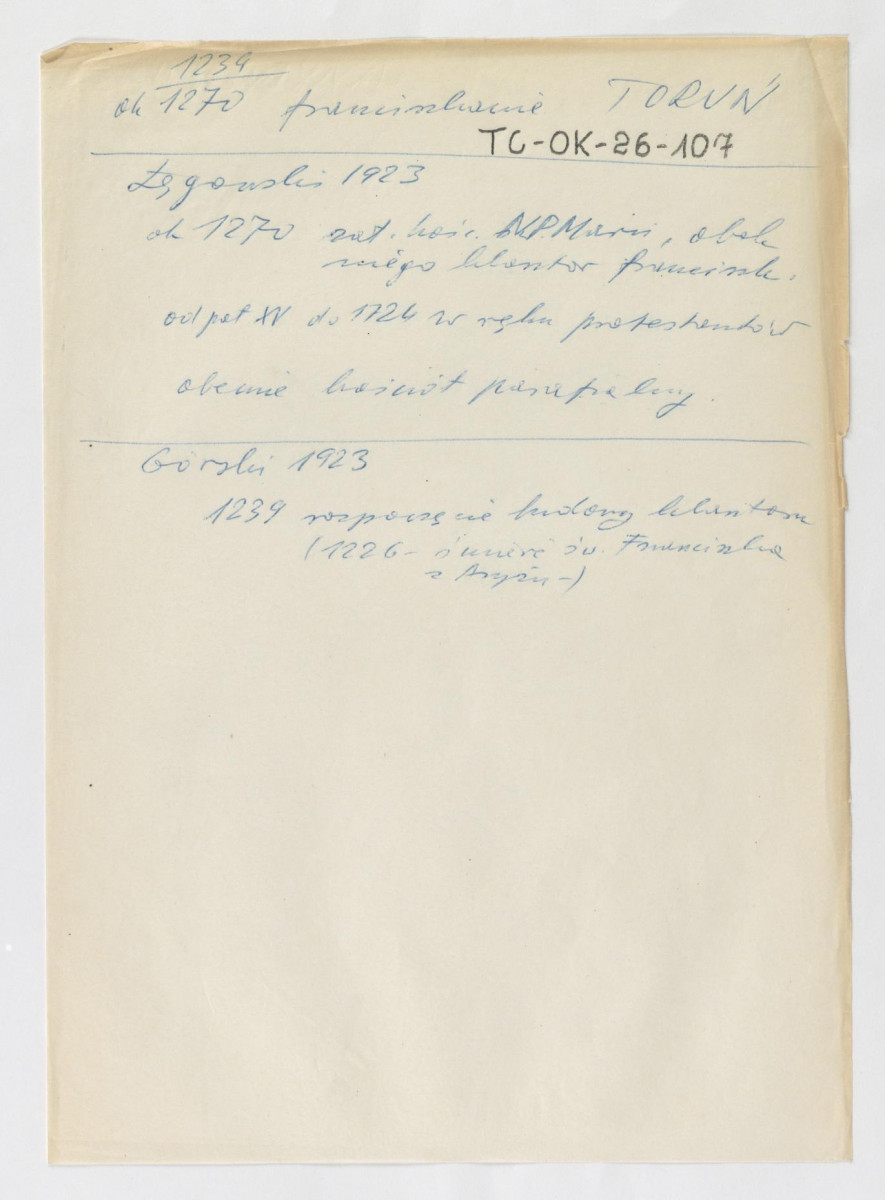 1239
ok 1270 franciszkanie TORUŃ
TC-OK-26-107
Łęgowski 1923
ok 1270 zał. kośc. NP.Marii, obok
niego klasztor franciszk.
od poł XV do 1724 w ręku protestantów
obecnie kościół parafialny.
Górski 1923
1239 rozpoczęcie budowy klasztoru
(1226 - śmierć św. Franciszka
z Asyżu -)